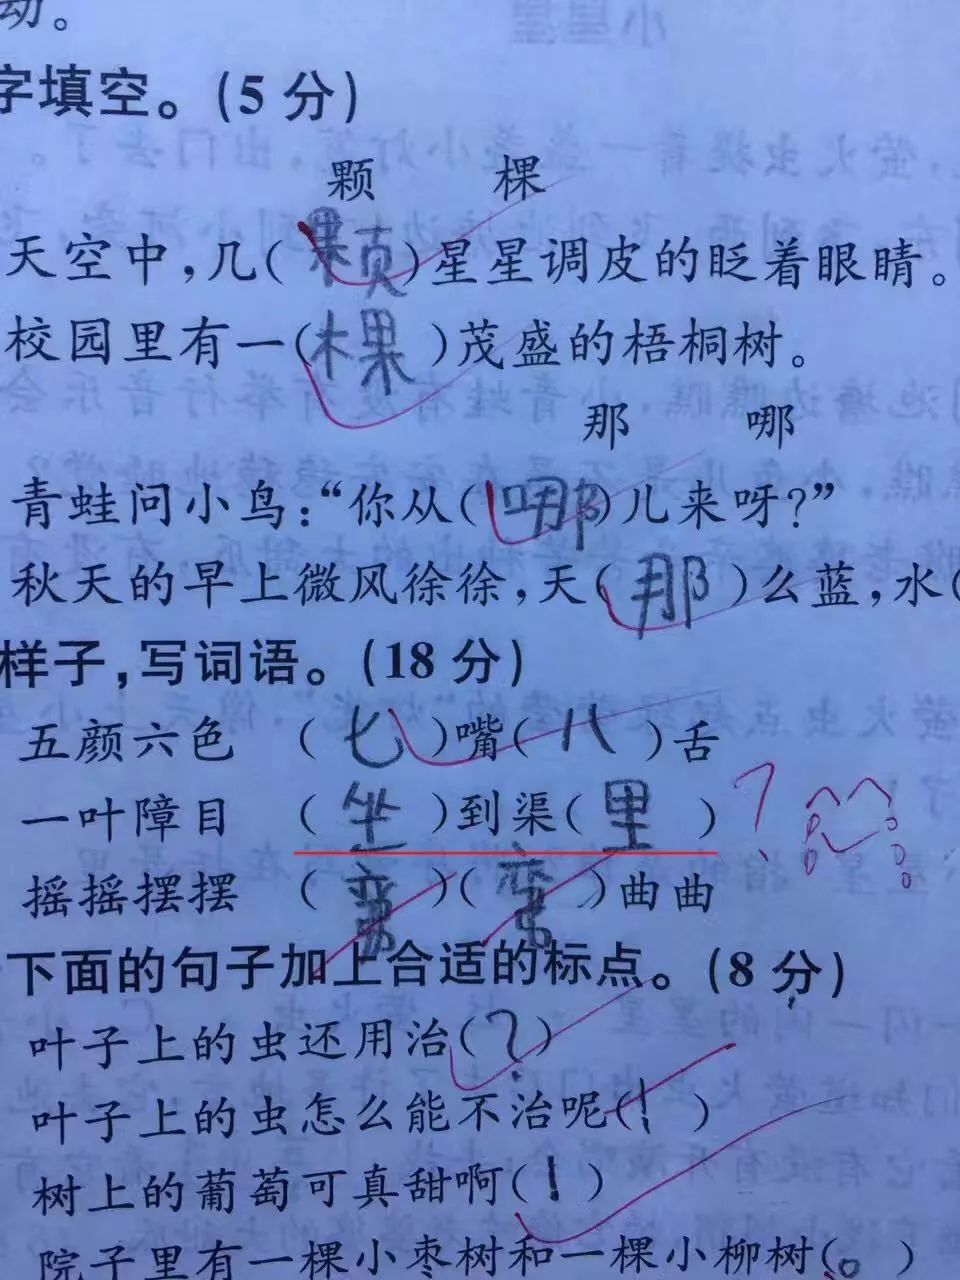 动。
字填空。(5分)
颗 棵
天空中,几(颗)星星调皮的眨着眼睛。
校园里有一(棵)茂盛的梧桐树。
那 哪
青蛙问小鸟:“你从(哪)儿来呀?”
秋天的早上微风徐徐,天(那)么蓝,水(
样子,写词语。(18分)
五颜六色 (七)嘴(八)舌
一叶障目 (坐)到渠(里) ?
摇摇摆摆 (弯)(弯)曲曲
下面的句子加上合适的标点。(8分)
叶子上的虫还用治(?)
叶子上的虫怎么能不治呢(!)
树上的葡萄可真甜啊(!)
院子里有一棵小枣树和一棵小柳树(。)